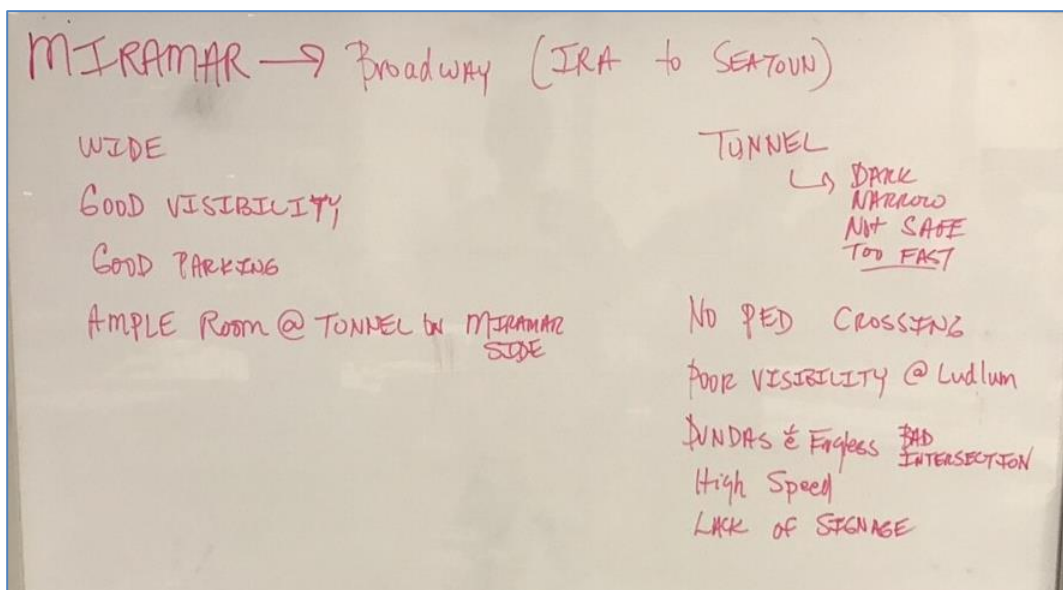 MIRAMAR → Broadway (IRA to SEATOUN)
WIDE
GOOD VISIBILITY
GOOD PARKING
AMPLE Room @ TUNNEL ON MIRAMAR
SIDE
TUNNEL
↳ DARK
NARROW
Not SAFE
Too FAST
No PED CROSSING
POOR VISIBILITY @ Ludlum
DUNDAS & BAD
INTERSECTION
High Speed
LACK of SIGNAGE